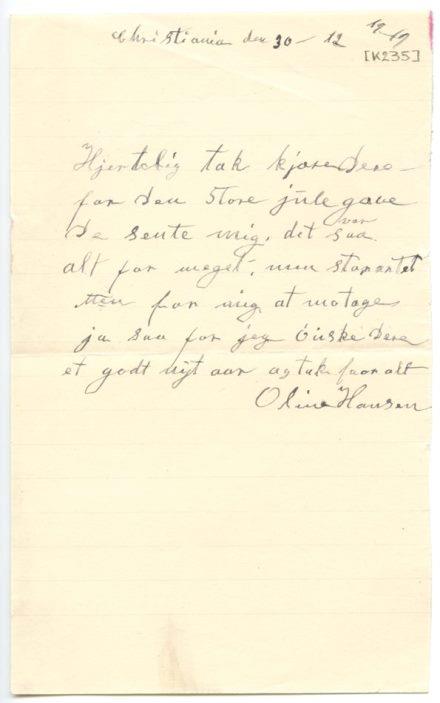 Christiania den 30 – 12
19
19
[K235]
Hjertelig tak kjære Dere –
for den store julegave
De sente mig, det var saa
alt for meget,
for mig at motage
ja saa for jeg önske Dere
et godt nytt aar og tak for alt
Oline Hansen